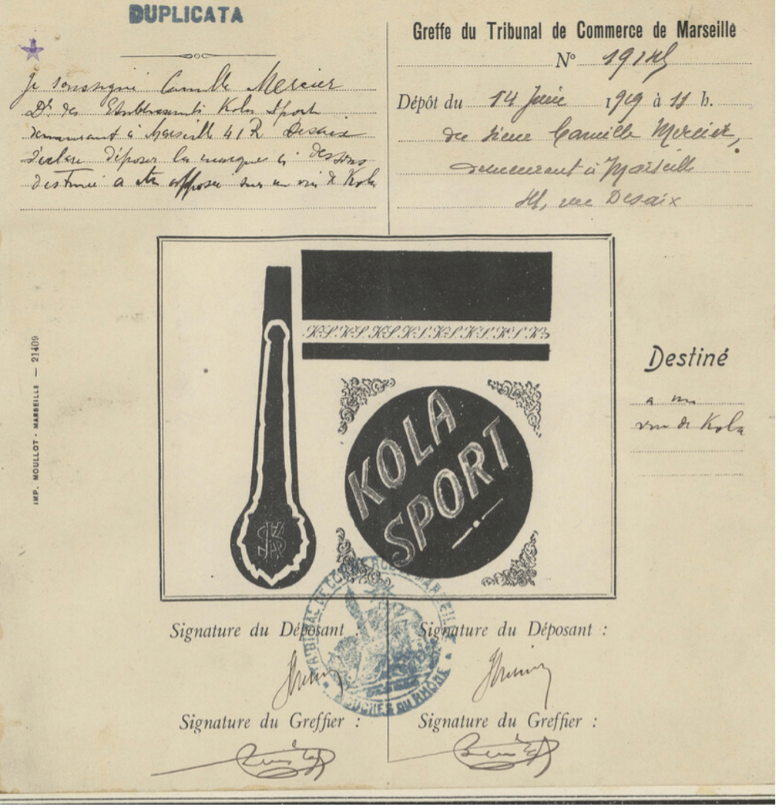 DUPLICATA
Je soussigné Camille Mercier
Dr des Etablissements Kola Sport
demeurant à Marseille 41 R Desaix
déclare déposer la marque ci dessous
destinée a etre apposée sur un vin de Kola
Greffe du Tribunal de Commerce de Marseille
N°
Dépôt du 14 Juin 1919 à 11 h.
du sieur Camille Mercier,
demeurant à Marseille
41, rue Desaix
KS KS KS KS KS KS KS KS
KOLA
SPORT
KS
Destiné
a un
vin de Kola
IMP. MOULLOT - MARSEILLE — 21409
TRIBUNAL DE COMMERCE DE MARSEILLE
BOUCHES DU RHÔNE
Signature du Déposant : Signature du Déposant :
Signature du Greffier : Signature du Greffier :